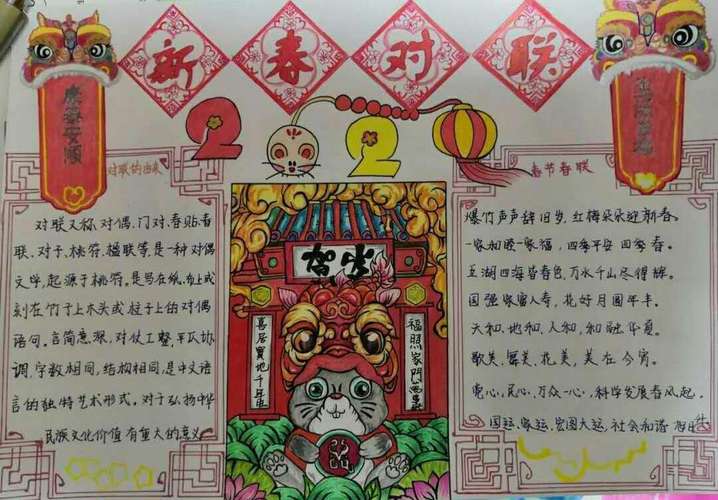 新春对联
2 2
对联的由来
对联又称对偶、门对、春贴、春
联、对子、桃符、楹联等,是一种对偶
文学,起源于桃符。是写在纸、布上或
刻在竹子上木头或柱子上的对偶
语句。言简意深,对仗工整,平仄协
调,字数相同,结构相同,是中文语
言的独特艺术形式。对于弘扬中华
民族文化价值有重大的意义
喜居寶地千年
福照家門萬事
春节春联
爆竹声声辞旧岁,红梅朵朵迎新春。
一家和睦一家福,四季平安四季春。
五湖四海皆春色,万水千山尽得辉。
国强家富人寿,花好月圆年丰。
天和、地和、人和,和融华夏。
歌美、舞美、花美,美在今宵。
党心、民心、万众一心,科学发展春风起。
国运、家运、宏图大运,社会和谐